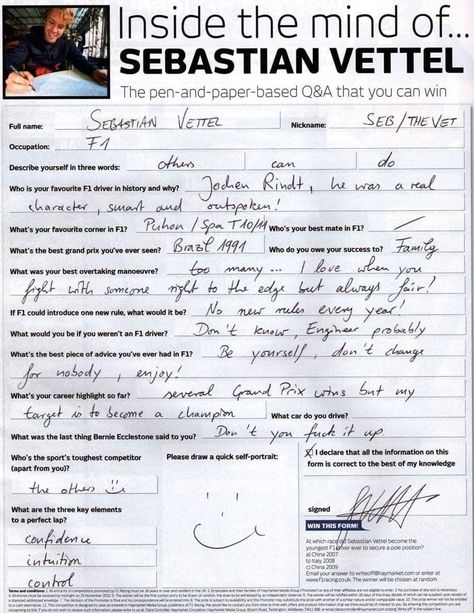 Inside the mind of...
SEBASTIAN VETTEL
The pen-and-paper-based Q&A that you can win
Full name: SEBASTIAN VETTEL Nickname: SEB/THEVET
Occupation: F1
Describe yourself in three words: others can do
Who is your favourite F1 driver in history and why? Jochen Rindt, he was a real
character, smart and outspoken!
What's your favourite corner in F1? Puhon / Spa T10/11 Who's your best mate in F1? /
What's the best grand prix you've ever seen? Brazil 1991 Who do you owe your success to? Family
What was your best overtaking manoeuvre? too many... I love when you
fight with someone right to the edge but always fair!
If F1 could introduce one new rule, what would it be? No new rules every year!
What would you be if you weren't an F1 driver? Don't know, Engineer probably
What's the best piece of advice you've ever had in F1? Be yourself, don't change
for nobody, enjoy!
What's your career highlight so far? several Grand Prix wins but my
target is to become a champion What car do you drive?
What was the last thing Bernie Ecclestone said to you? Don't you fuck it up.
Who's the sport's toughest competitor
(apart from you)?
the others
What are the three key elements
to a perfect lap?
confidence
intuition
control
Please draw a quick self-portrait:
I declare that all the information on this
form is correct to the best of my knowledge
signed
WIN THIS FORM!
At which race did Sebastian Vettel become the
youngest F1 driver ever to secure a pole position?
a) China 2007
b) Italy 2008
c) China 2009
Email your answer to writeoff@haymarket.com or enter at
www.f1racing.co.uk. The winner will be chosen at random